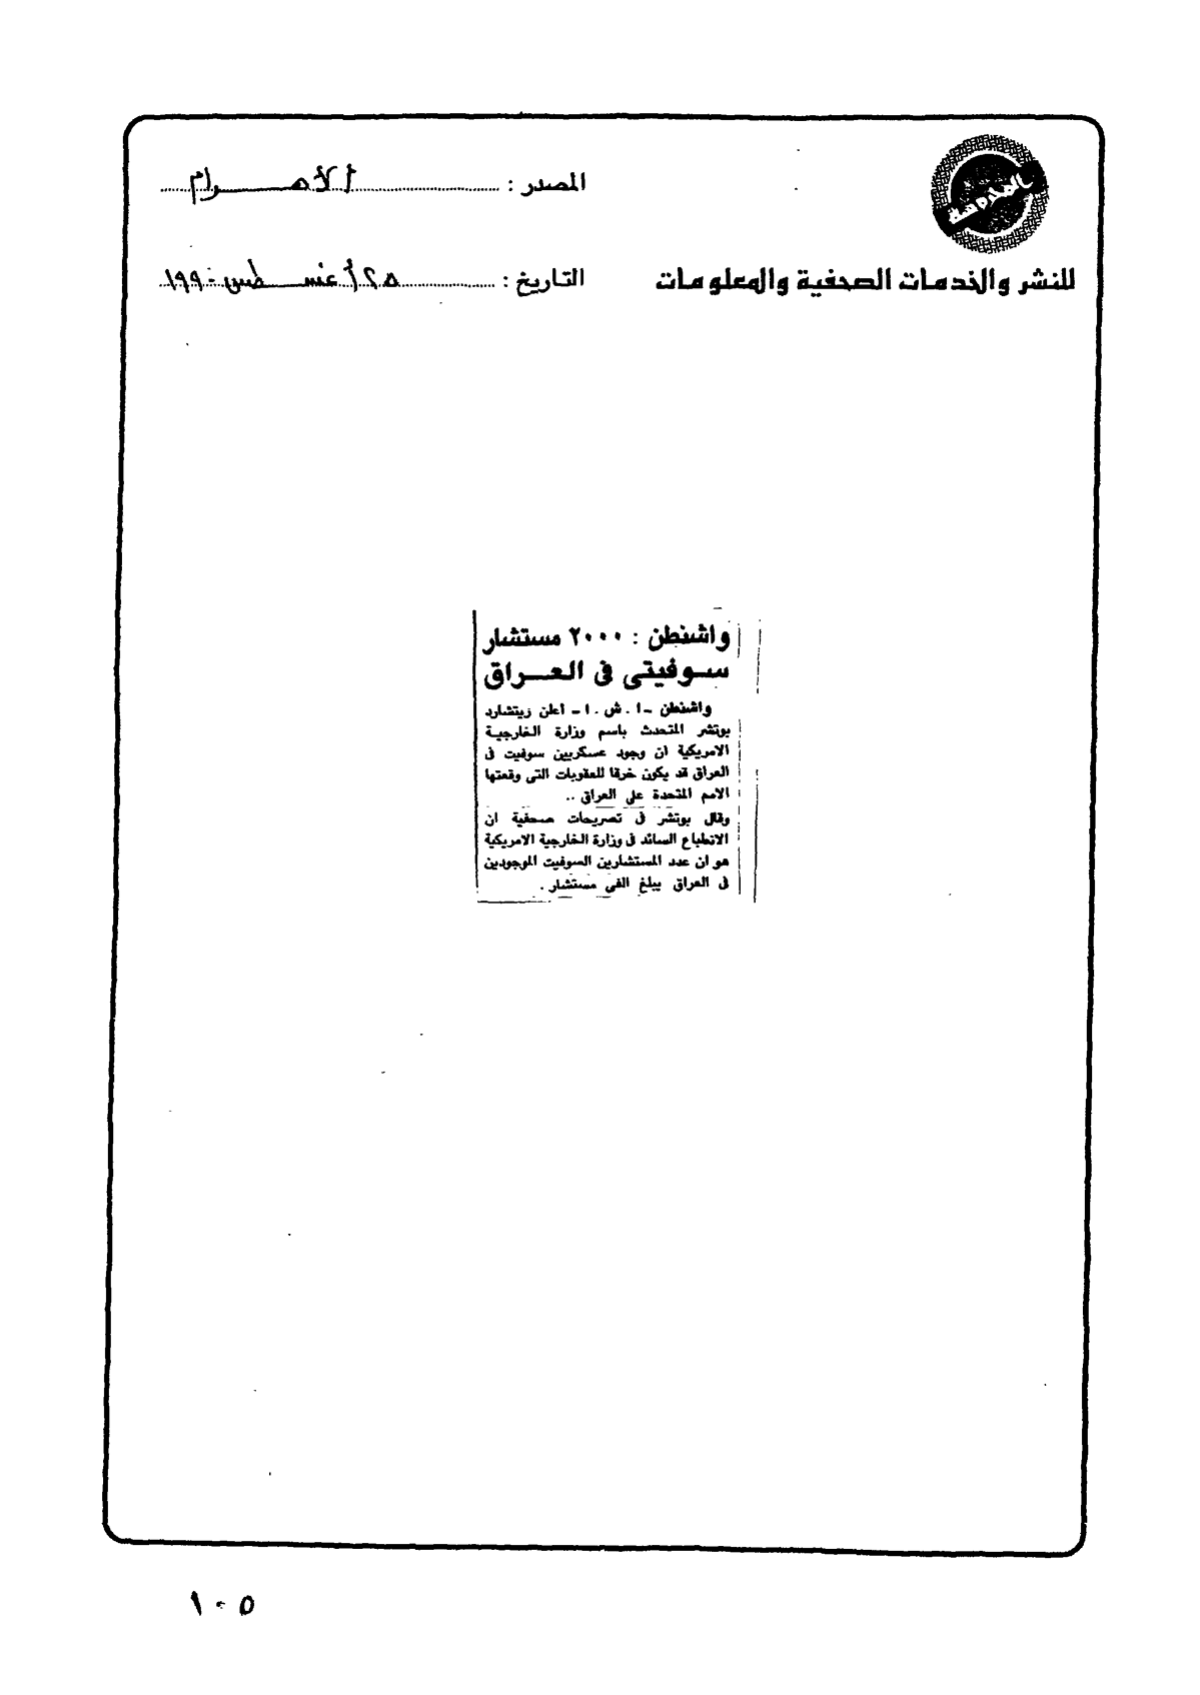 المصدر : الأهرام
للنشر والخدمات الصحفية والمعلومات
التاريخ : ٢٥ أغسطس ١٩٩٠
واشنطن : ٢٠٠٠ مستشار
سوفيتى فى العراق
واشنطن - ا . ش . ا - اعلن ريتشارد
بوتشر المتحدث باسم وزارة الخارجية
الامريكية ان وجود عسكريين سوفيت فى
العراق قد يكون خرقا للعقوبات التى وقعتها
الامم المتحدة على العراق ..
وقال بوتشر فى تصريحات صحفية ان
الانطباع السائد فى وزارة الخارجية الامريكية
هو ان عدد المستشارين السوفيت الموجودين
فى العراق يبلغ الفى مستشار .
١٠٥